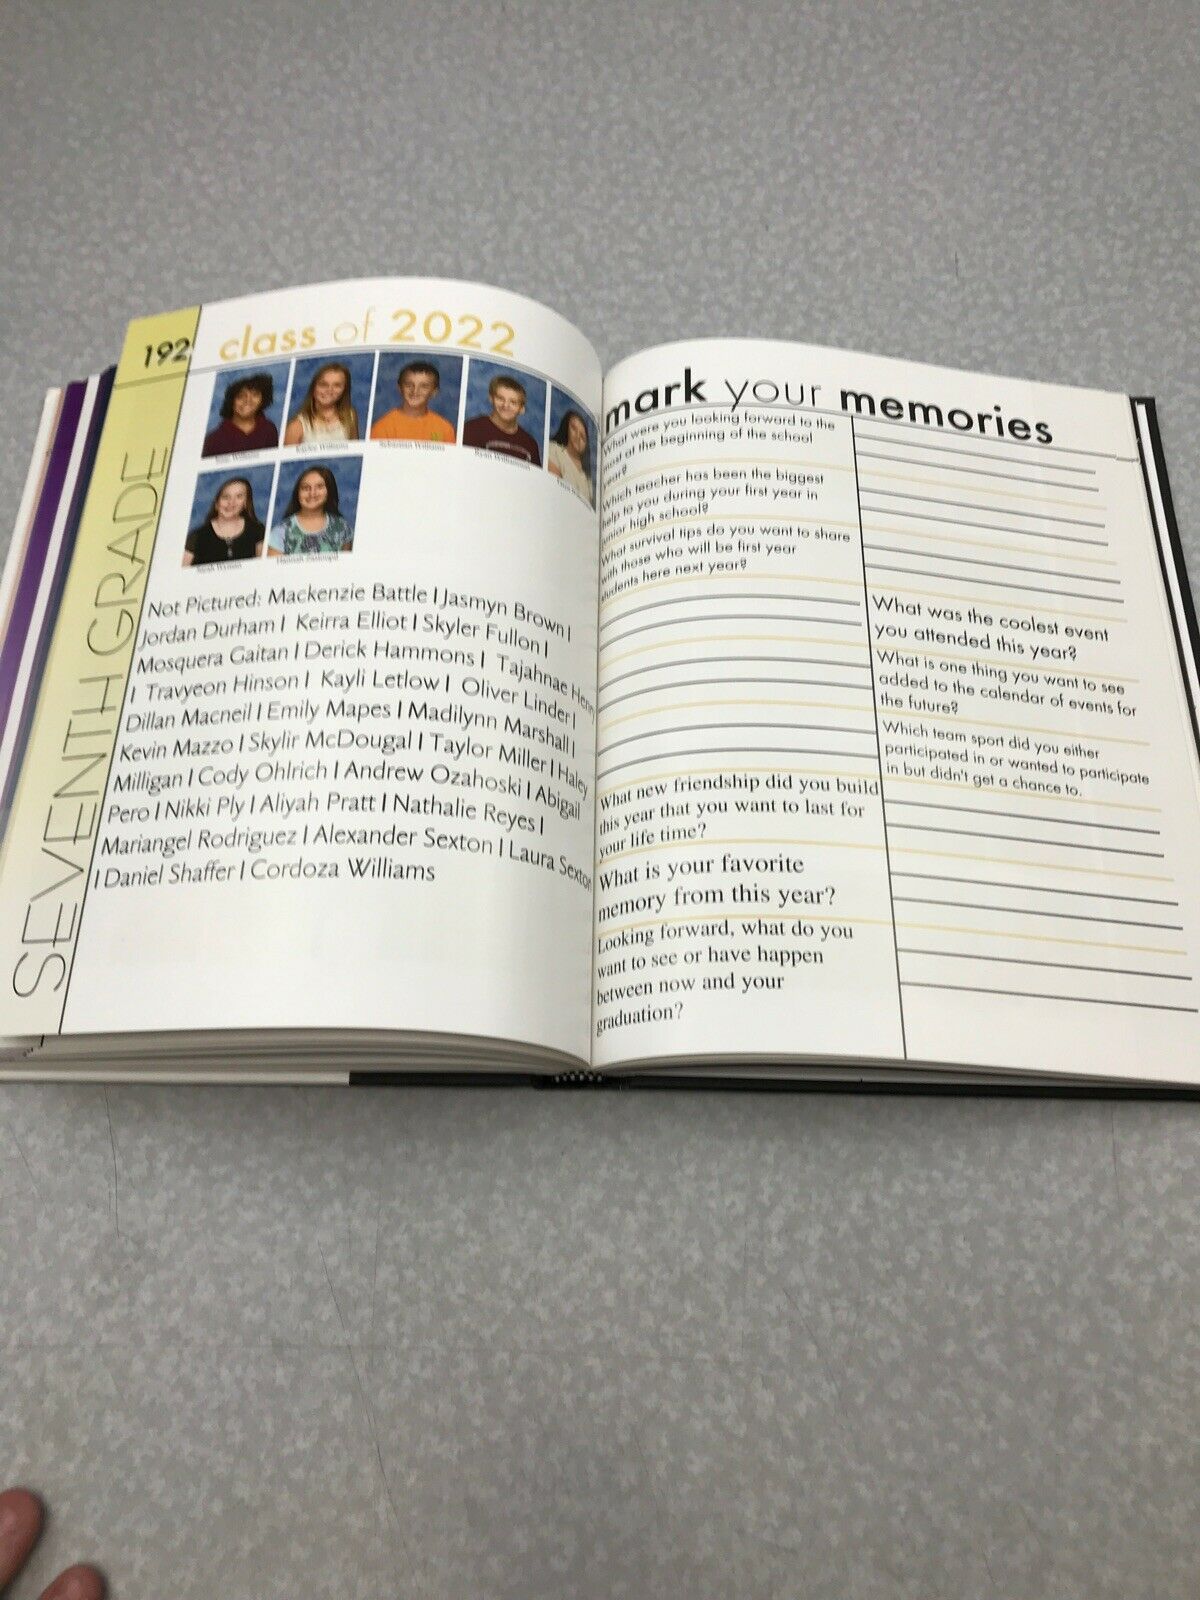 192
class of 2022
SEVENTH GRADE
Williams
Sebastian Williams
Ryan Williamson
Sarah Wyman
Hannah
Not Pictured: Mackenzie Battle | Jasmyn Brown |
Jordan Durham | Keirra Elliot | Skyler Fullon |
Mosquera Gaitan | Derick Hammons | Tajahnae Henry
| Travyeon Hinson | Kayli Letlow | Oliver Linder |
Dillan Macneil | Emily Mapes | Madilynn Marshall |
Kevin Mazzo | Skylir McDougal | Taylor Miller | Haley
Milligan | Cody Ohlrich | Andrew Ozahoski | Abigail
Pero | Nikki Ply | Aliyah Pratt | Nathalie Reyes |
Mariangel Rodriguez | Alexander Sexton | Laura Sexton
| Daniel Shaffer | Cordoza Williams
mark your memories
What were you looking forward to the
most at the beginning of the school
year?
Which teacher has been the biggest
help to you during your first year in
junior high school?
What survival tips do you want to share
with those who will be first year
students here next year?
What new friendship did you build
this year that you want to last for
your life time?
What is your favorite
memory from this year?
Looking forward, what do you
want to see or have happen
between now and your
graduation?
What was the coolest event
you attended this year?
What is one thing you want to see
added to the calendar of events for
the future?
Which team sport did you either
participated in or wanted to participate
in but didn't get a chance to.